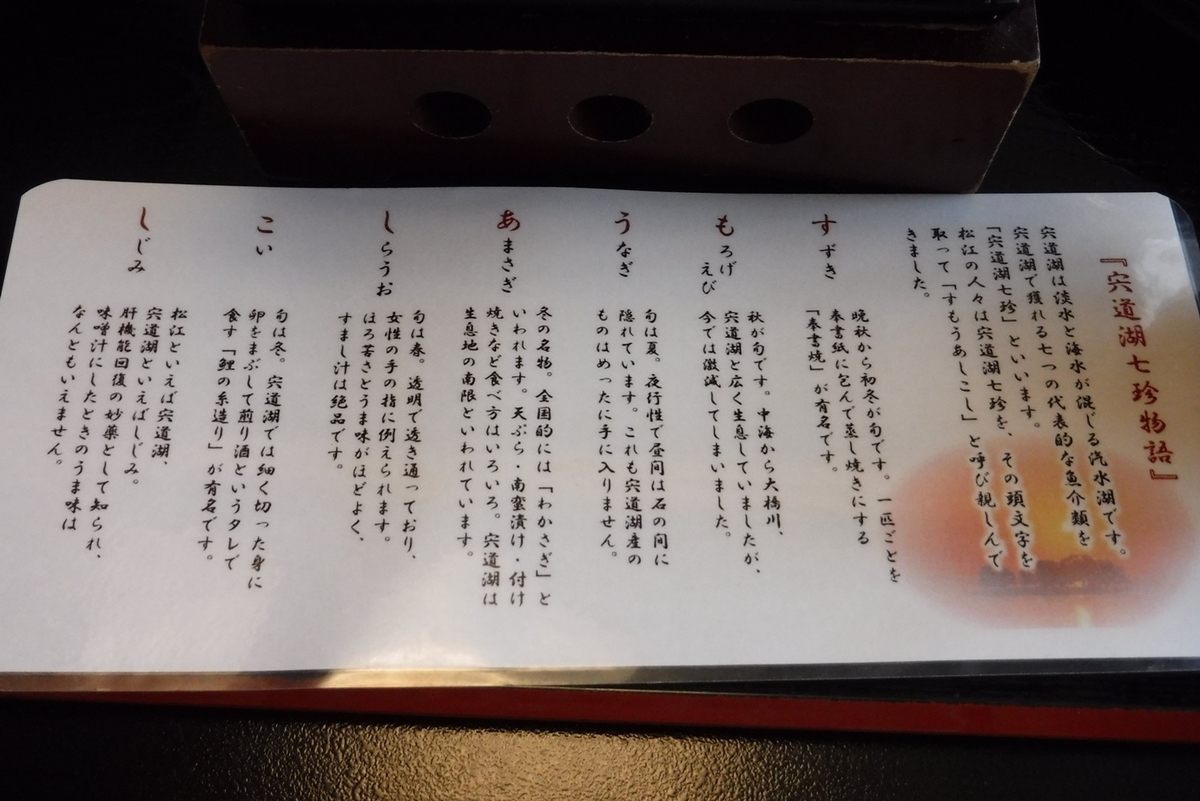 『宍道湖七珍物語』
宍道湖は淡水と海水が混じる汽水湖です。
宍道湖で獲れる七つの代表的な魚介類を
「宍道湖七珍」といいます。
松江の人々は宍道湖七珍を、その頭文字を
取って「すもうあしこし」と呼び親しんで
きました。
すずき
晩秋から初冬が旬です。一匹ごとを
奉書紙に包んで蒸し焼きにする
「奉書焼」が有名です。
もろげ
えび
秋が旬です。中海から大橋川、
宍道湖と広く生息していましたが、
今では激減してしまいました。
うなぎ
旬は夏。夜行性で昼間は石の間に
隠れています。これも宍道湖産の
ものはめったに手に入りません。
あまさぎ
冬の名物。全国的には「わかさぎ」と
いわれます。天ぷら・南蛮漬け・付け
焼きなど食べ方はいろいろ。宍道湖は
生息地の南限といわれています。
しらうお
旬は春。透明で透き通っており、
女性の手の指に例えられます。
ほろ苦さとうま味がほどよく、
すまし汁は絶品です。
こい
旬は冬。宍道湖では細く切った身に
卵をまぶして煎り酒というタレで
食す「鯉の糸造り」が有名です。
しじみ
松江といえば宍道湖、
宍道湖といえばしじみ。
肝機能回復の妙薬として知られ、
味噌汁にしたときのうま味は
なんともいえません。